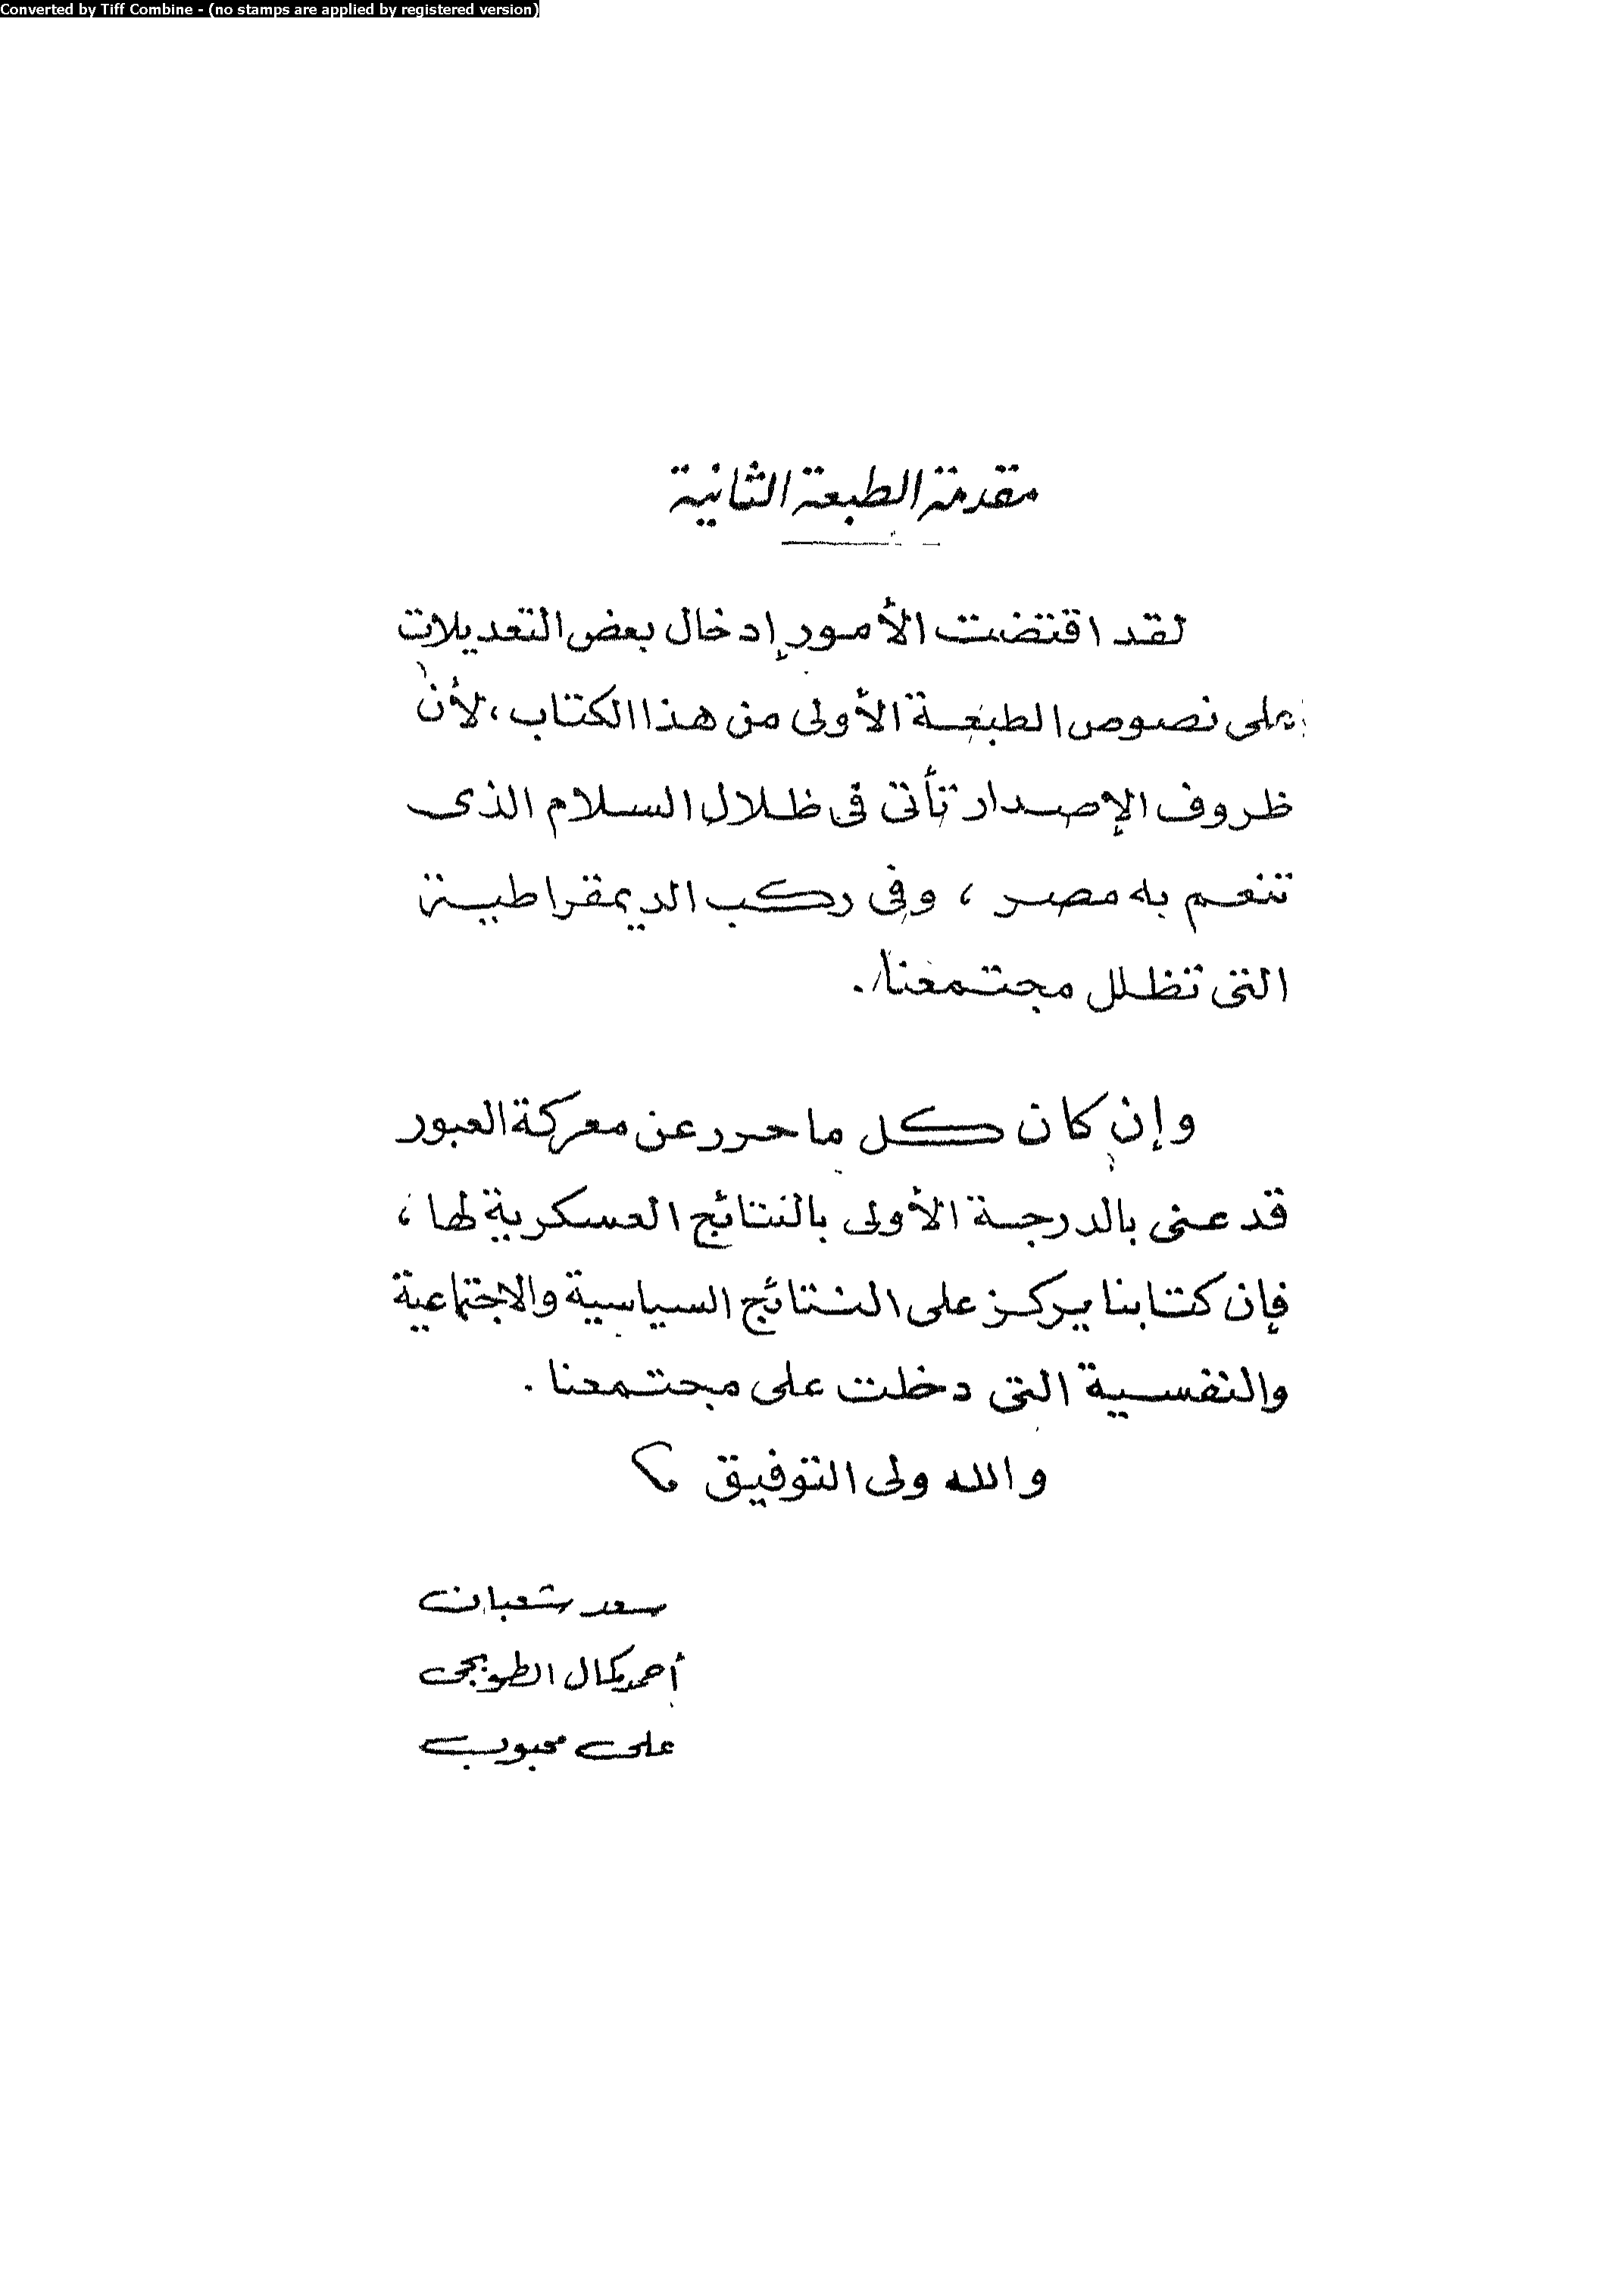 Converted by Tiff Combine - (no stamps are applied by registered version)
مقدمة الطبعة الثانية
لقد اقتضت الأمور إدخال بعض التعديلات
على نصوص الطبعة الأولى من هذا الكتاب، لأن
ظروف الإصدار تأتى فى ظلال السلام الذى
تنعم به مصر ، وفى ركب الديمقراطية
التى تظلل مجتمعنا .
وإن كان كل ما حرر عن معركة العبور
قد عنى بالدرجة الأولى بالنتائج العسكرية لها ،
فإن كتابنا يركز على النتائج السياسية والاجتماعية
والنفسية التى دخلت على مجتمعنا .
والله ولى التوفيق
سعد شعبان
أحمد كمال الطوبجى
على محبوب